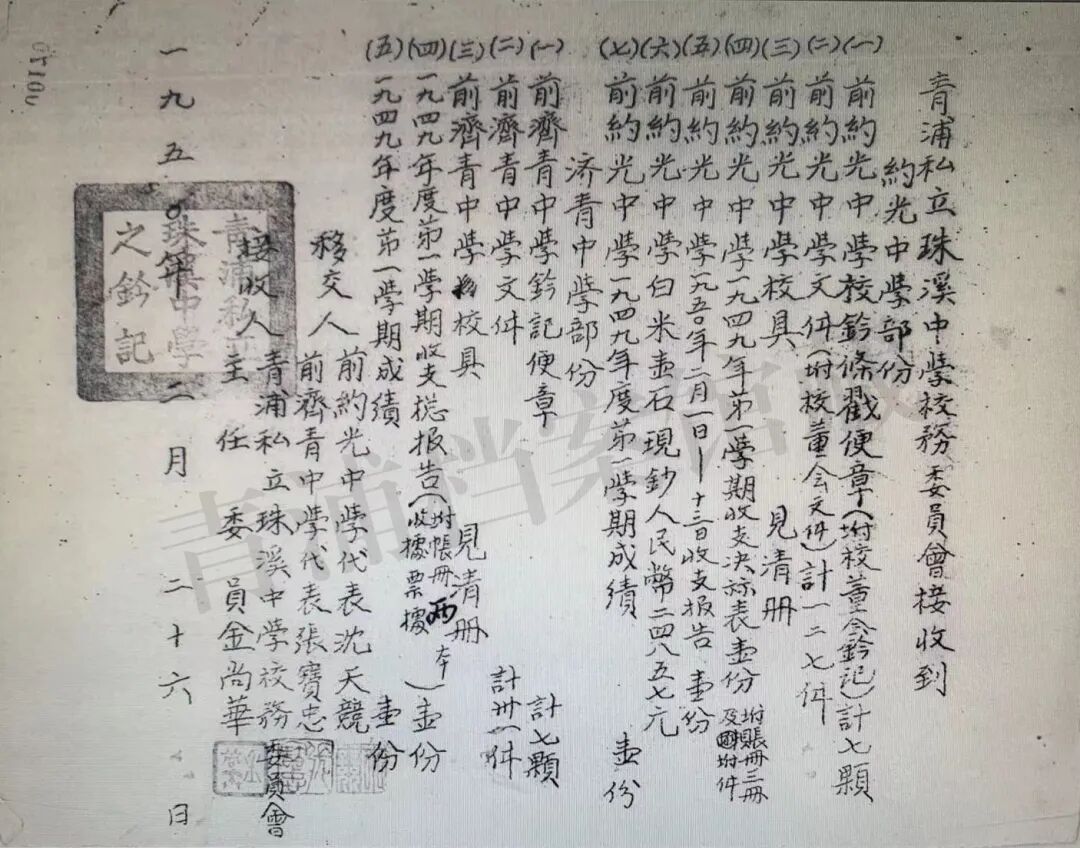 青浦私立珠溪中學校務委員會接收到
約光中學部份
(一)前約光中學校鈐條戳便章(坿校董会鈐記)計七顆
(二)前約光中學文件(坿校董会文件)計一二七件
(三)前約光中學校具 見清册
(四)前約光中學一九四九年第一學期收支决標表壹份 坿賬册三册及坿件
(五)前約光中學一九五〇年二月一日—十三日收支报告 壹份
(六)前約光中學白米壹石現鈔人民幣二四八五七元
(七)前約光中學一九四九年度第一學期成績 壹份
济青中學部份
(一)前濟青中學鈐記便章 計七顆
(二)前濟青中學文件 計卅一件
(三)前濟青中學校具 見清册
(四)一九四九年度第一學期收支総报告(坿帳册两本收據票據)壹份
(五)一九四九年度第一學期成績 壹份
移交人 前約光中學代表沈天競
前濟青中學代表張寶忠
接收人 青浦私立珠溪中學校務委員會
主任委員金尚華
一九五〇年二月二十六日
青浦私立珠溪中學之鈐記
00170
青浦档案馆